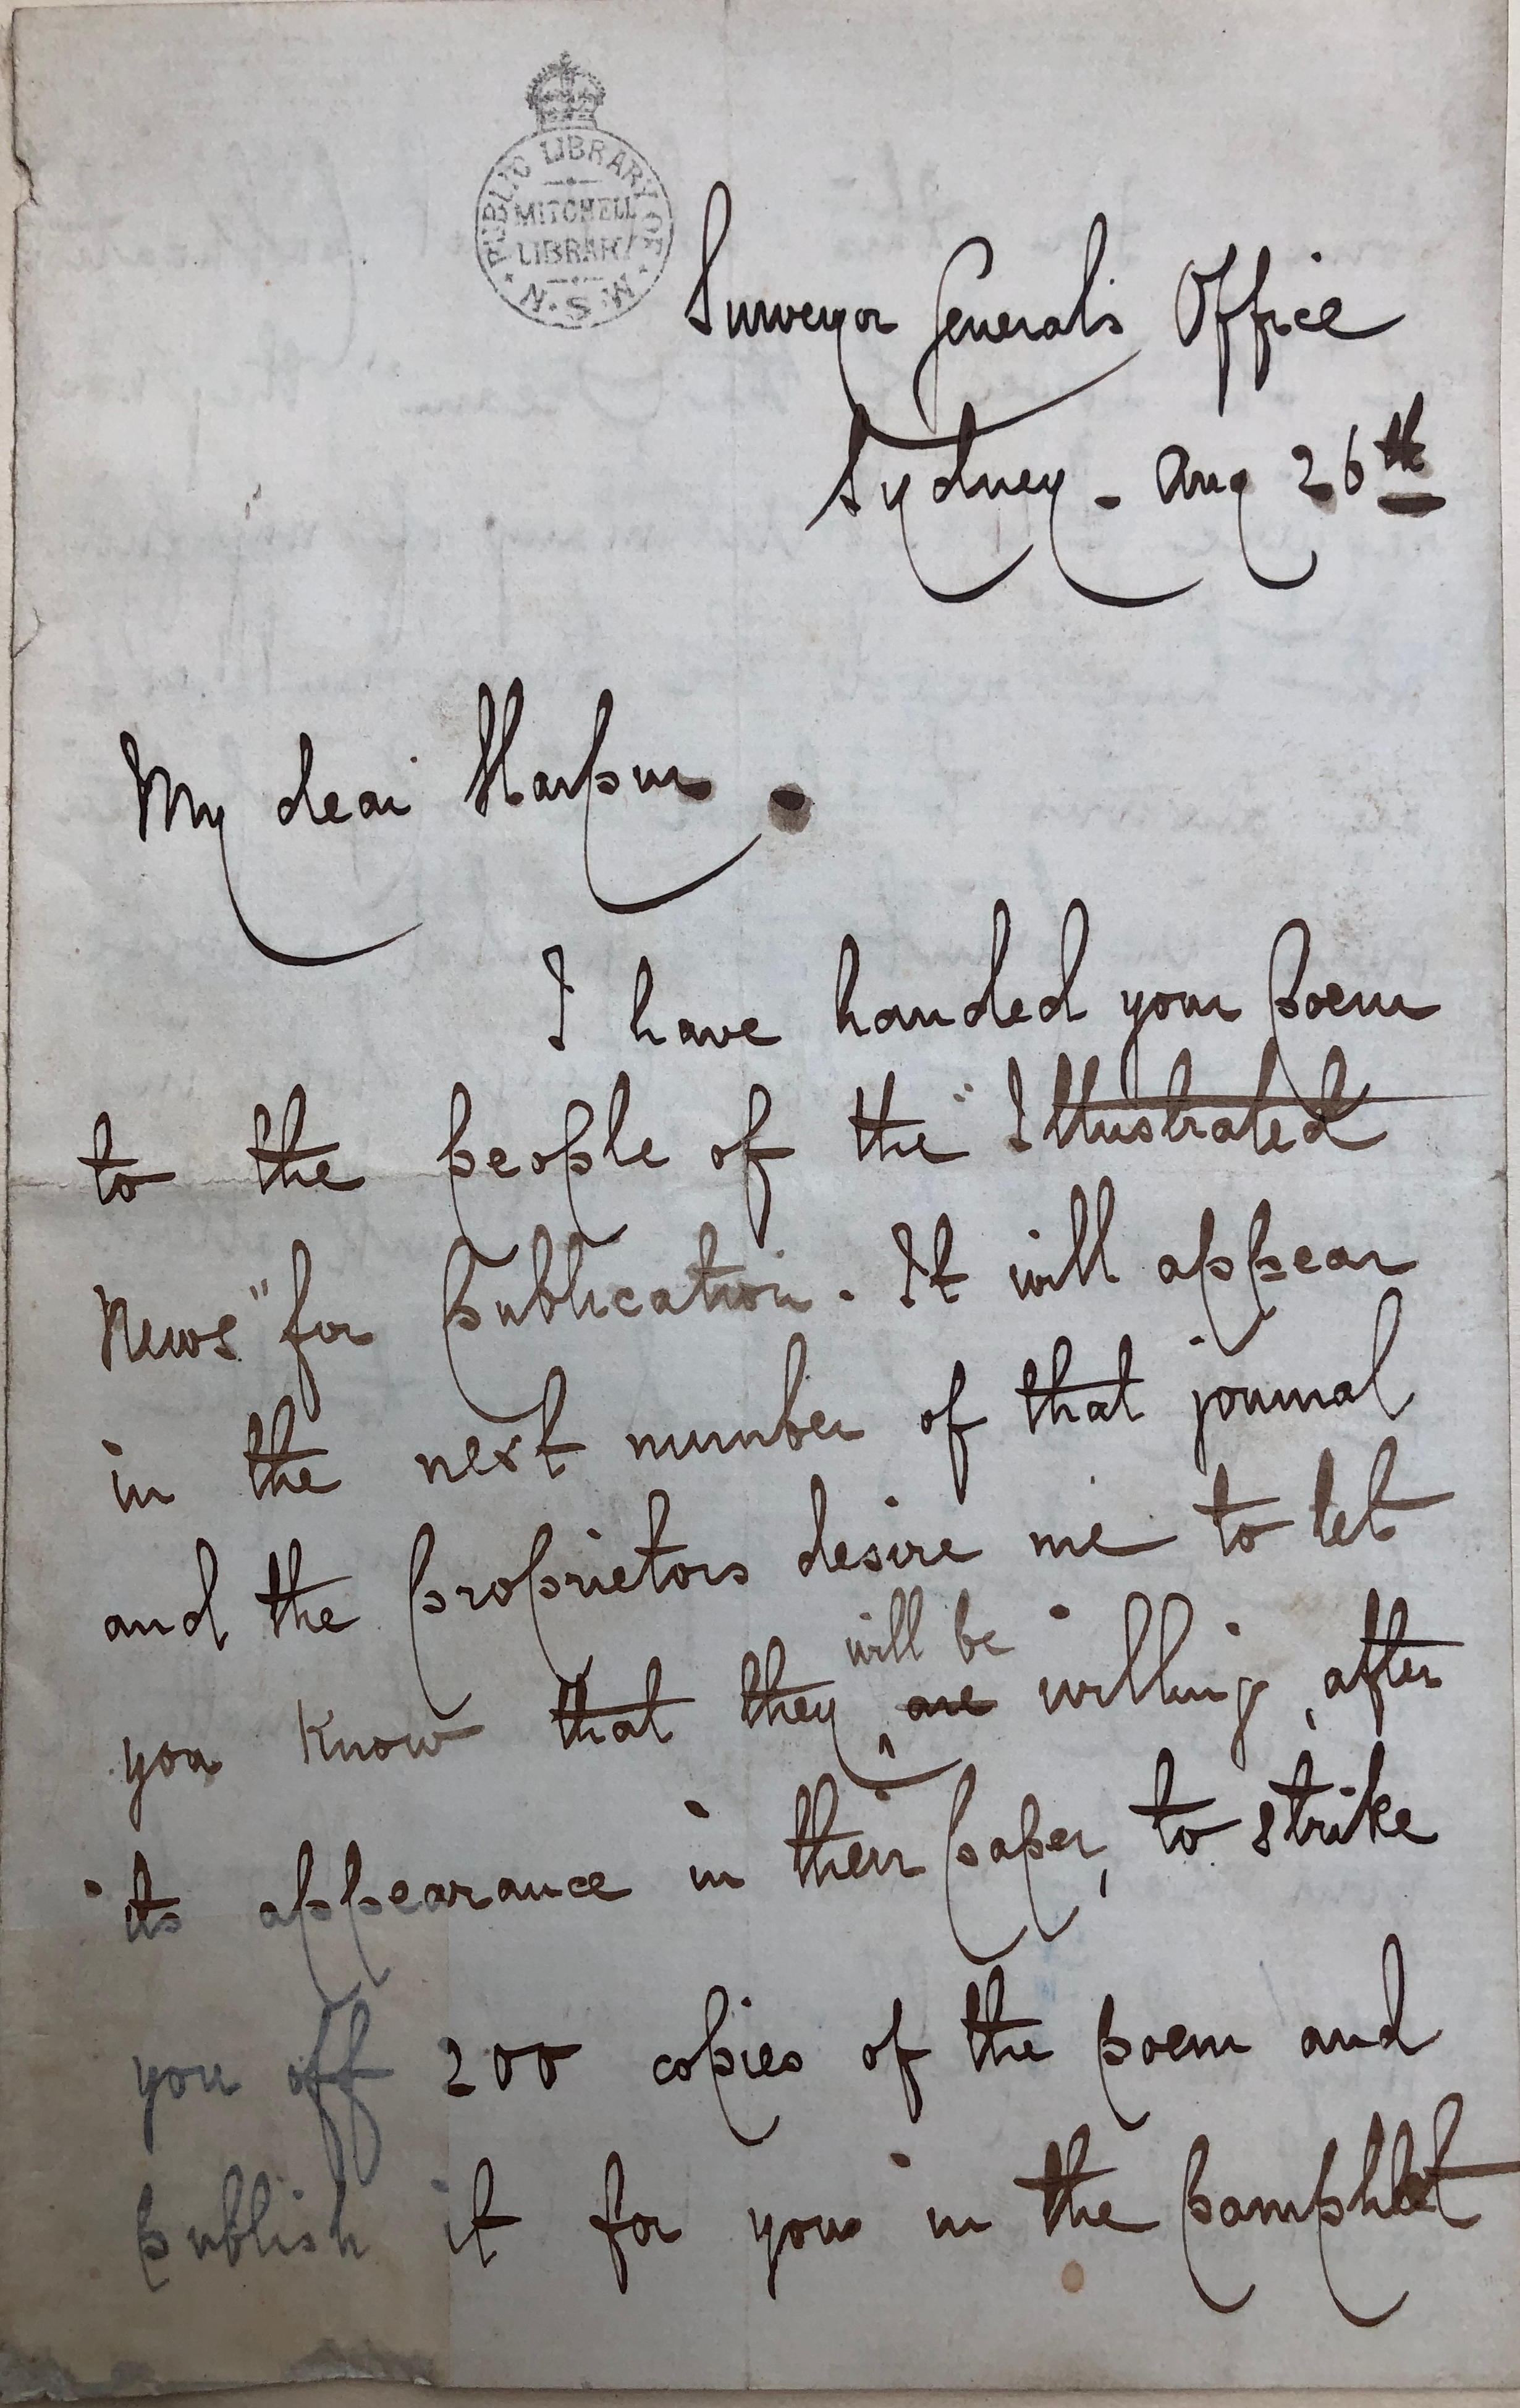 PUBLIC LIBRARY OF
MITCHELL
LIBRARY
N.S.W.
Surveyor General's Office
Sydney - Aug 26th
My dear Harpur.
I have handed your poem
to the people of the "Illustrated
News" for publication. It will appear
in the next number of that journal
and the proprietors desire me to let
will be
you know that they are willing, after
its appearance in their paper, to strike
you off 200 copies of the poem and
publish it for you in the pamphlet